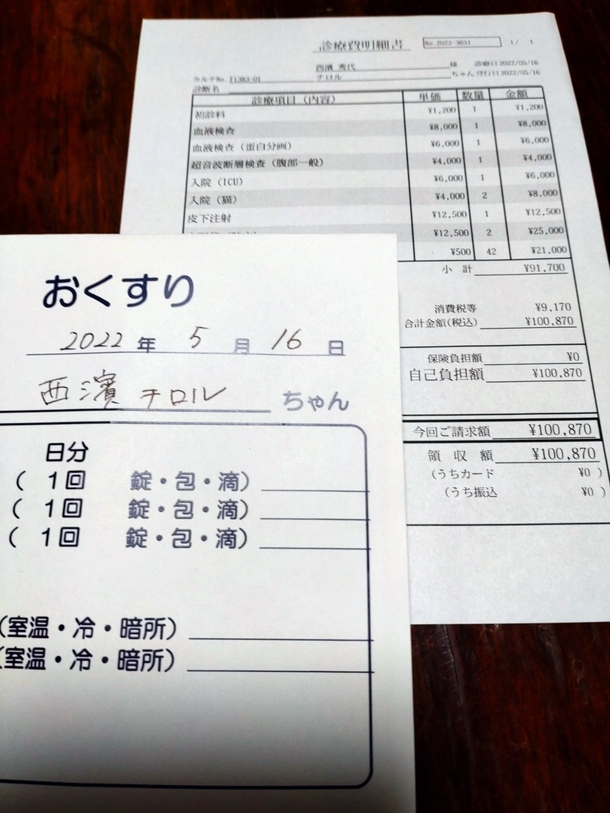 診療費明細書
No.2022-3631
1/ 1
西濱 秀代 様 診療日 2022/05/16
カルテNo. 11383-01 チロル ちゃん 2022/05/16
診断名
診療項目(内容) 単価 数量 金額
初診料 ¥1,200 1 ¥1,200
血液検査 ¥8,000 1 ¥8,000
血液検査(蛋白分画) ¥6,000 1 ¥6,000
超音波断層検査(腹部一般) ¥4,000 1 ¥4,000
入院(ICU) ¥6,000 1 ¥6,000
入院(猫) ¥4,000 2 ¥8,000
皮下注射 ¥12,500 1 ¥12,500
¥12,500 2 ¥25,000
¥500 42 ¥21,000
小 計 ¥91,700
消費税等 ¥9,170
合計金額(税込) ¥100,870
保険負担額 ¥0
自己負担額 ¥100,870
今回ご請求額 ¥100,870
領 収 額 ¥100,870
(うちカード ¥0 )
(うち振込 ¥0 )
おくすり
2022 年 5 月 16 日
西濱 チロル ちゃん
日分
( 1回 錠・包・滴)
( 1回 錠・包・滴)
( 1回 錠・包・滴)
(室温・冷・暗所)
(室温・冷・暗所)